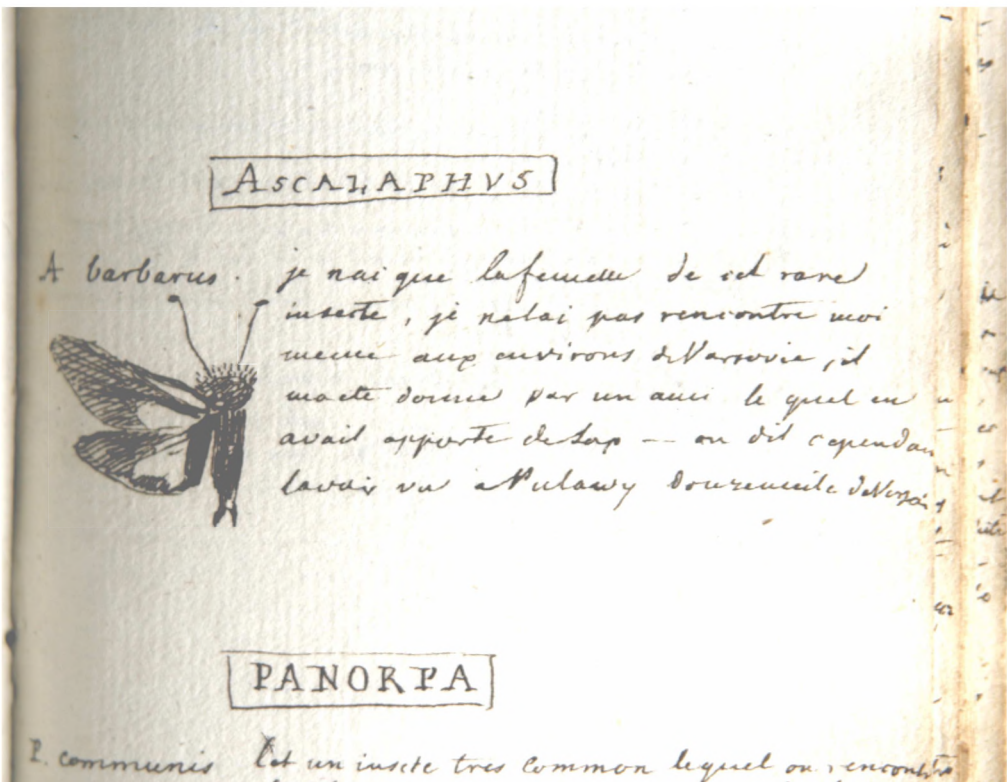 ASCALAPHVS
A barbarus. je nai que la femelle de cet rare
insecte, je nelai pas rencontre moi
meme aux environs de Varsovie, il
maete donne par un ami le quel en
avait apporte de — on dit cependant
lavoir vu a Pulawy douze
PANORPA
P. communis Cet un insecte tres common lequel on rencontre